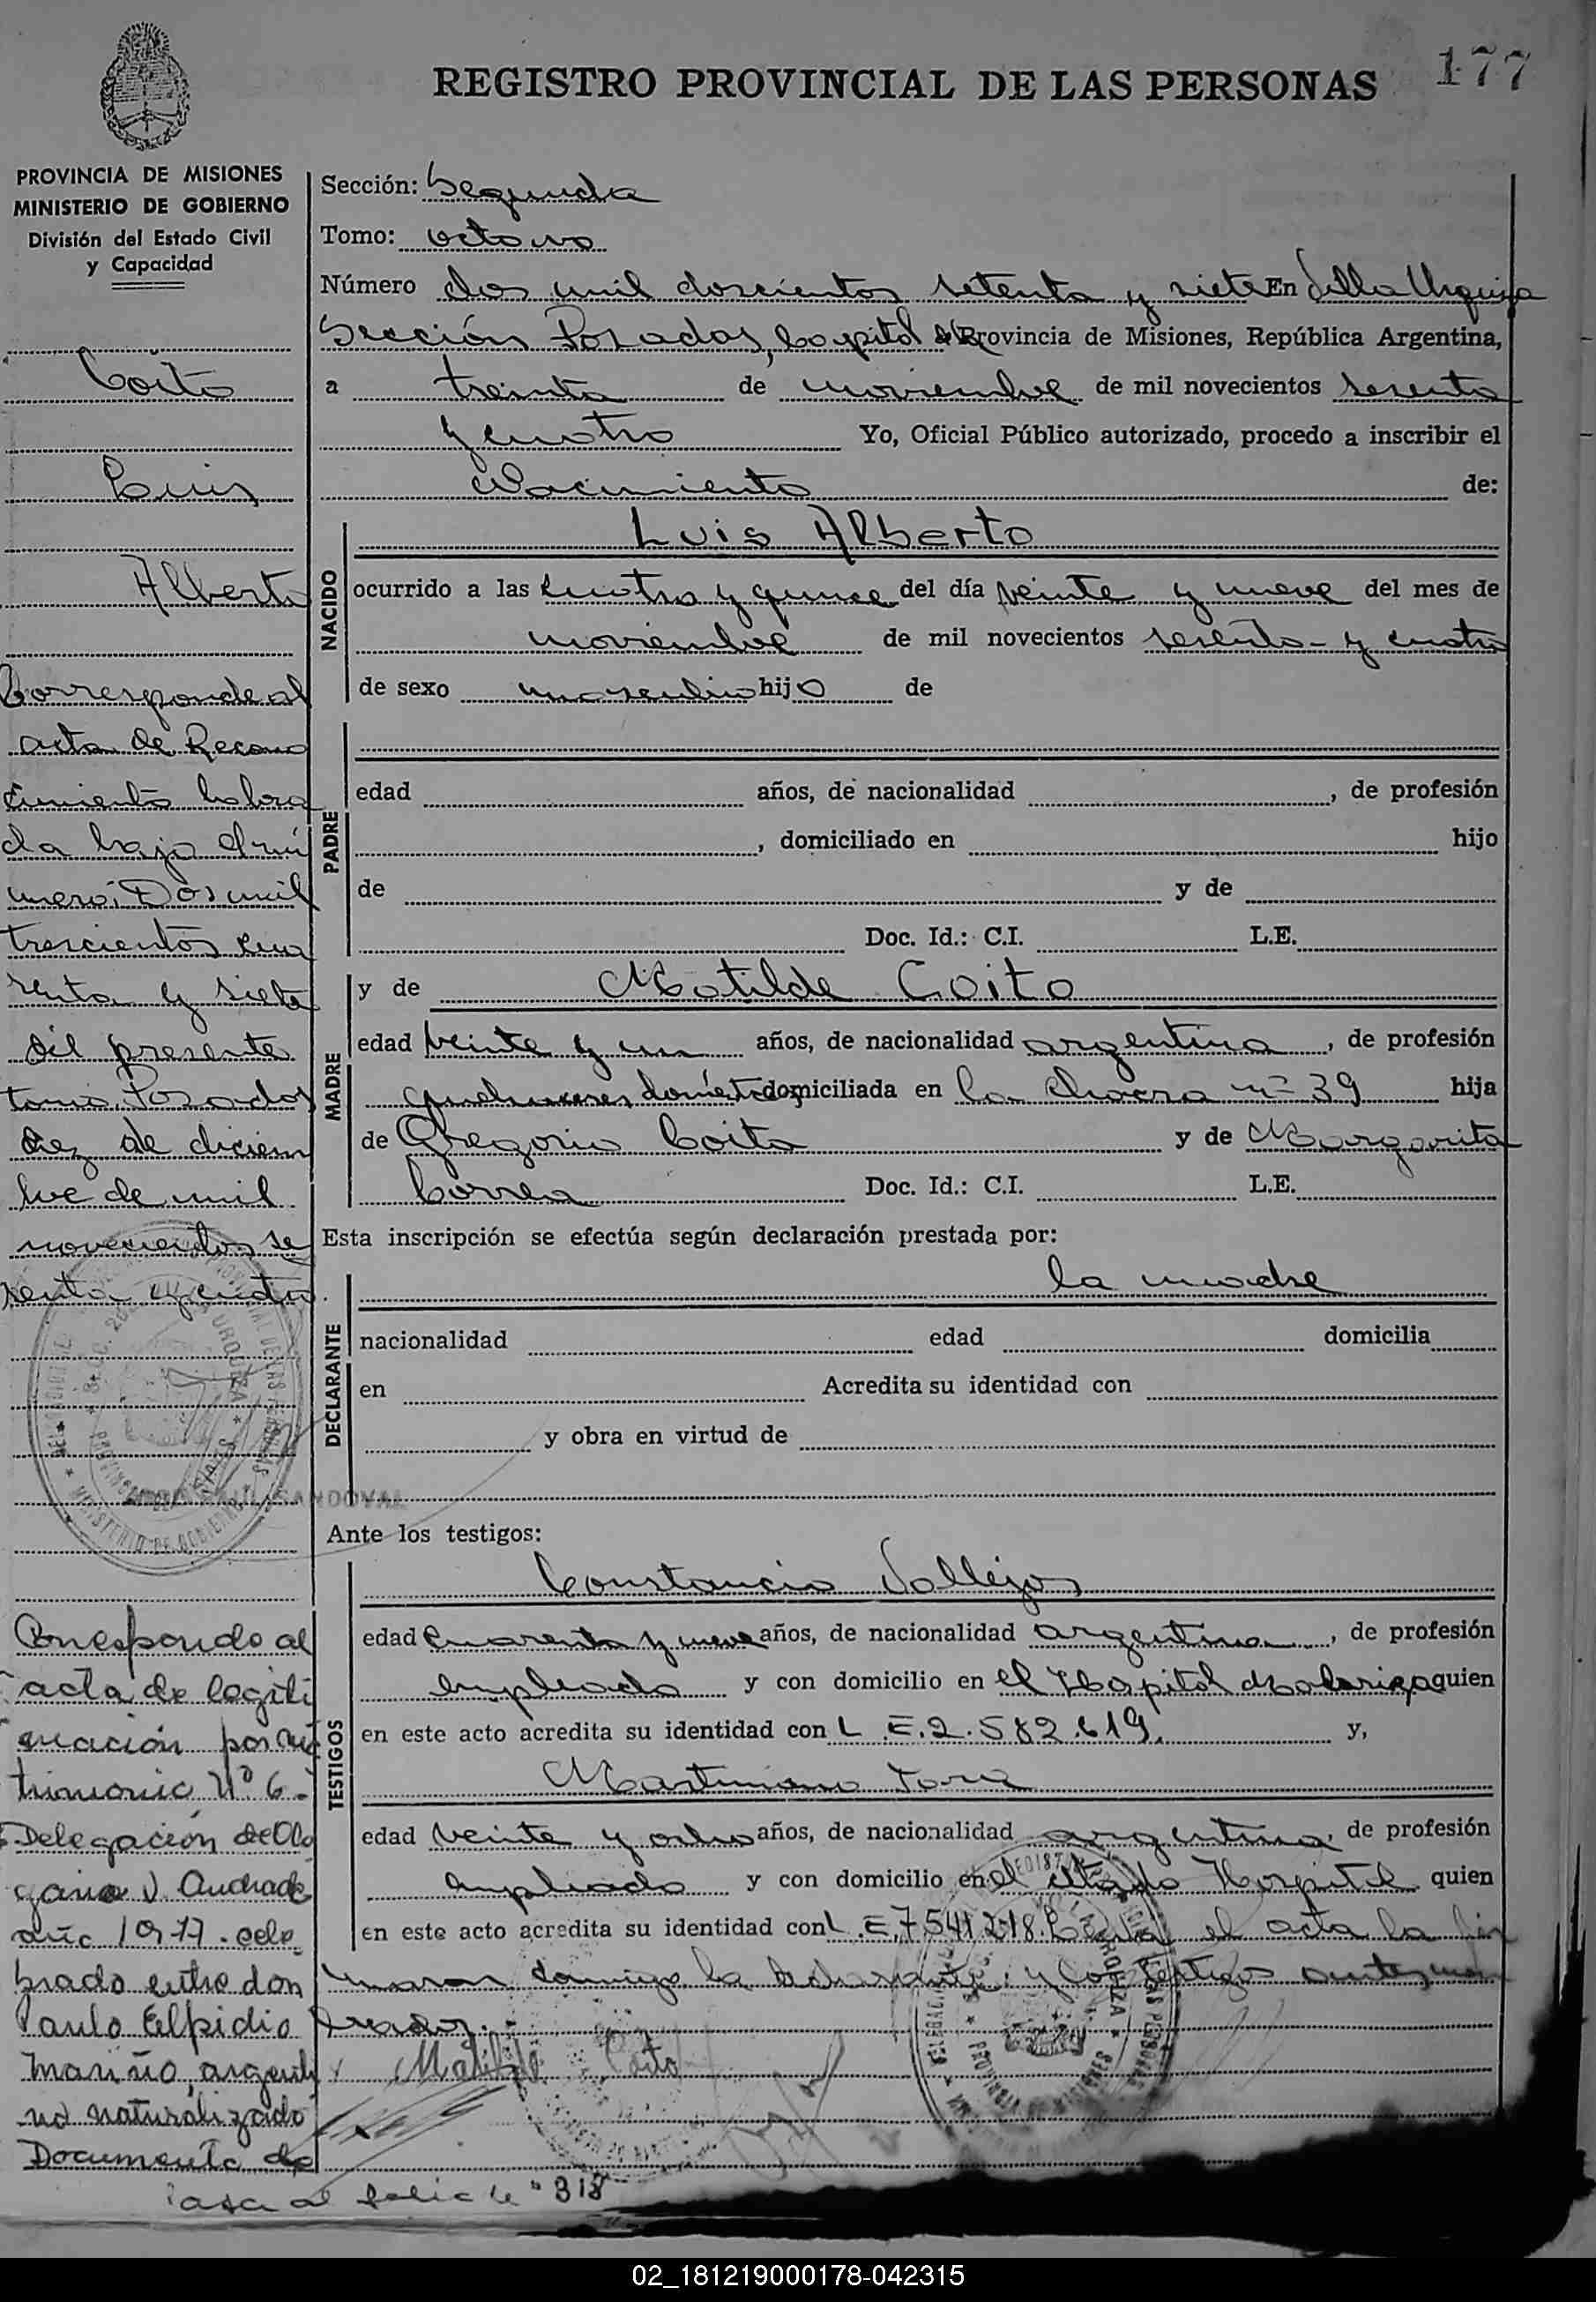 REGISTRO PROVINCIAL DE LAS PERSONAS 177
PROVINCIA DE MISIONES
MINISTERIO DE GOBIERNO
División del Estado Civil
y Capacidad
Coito
Luis
Alberto
Corresponde al
acta de Recono
cimiento labra
da bajo el nú
mero: Dos mil
trescientos cua
renta y siete
del presente
tomo. Posadas
diez de diciem
bre de mil
novecientos se
senta y cuatro.
SANDOVAL
Corresponde al
acta de legiti
mación por ma
trimonio Nº 6.-
Delegación de Olo
gario V. Andrade
año 1977. cele
brado entre don
Paulo Elpidio
Mariño, argenti
no naturalizado
Documento de
Sección: Segunda
Tomo: octavo
Número dos mil doscientos setenta y siete En Villa Urquiza
Sección Posadas, Capital de Provincia de Misiones, República Argentina,
a treinta de noviembre de mil novecientos sesenta
y cuatro Yo, Oficial Público autorizado, procedo a inscribir el
Nacimiento de:
NACIDO
Luis Alberto
ocurrido a las cuatro y quince del día veinte y nueve del mes de
noviembre de mil novecientos sesenta y cuatro
de sexo masculino hijo de
PADRE
edad años, de nacionalidad , de profesión
, domiciliado en hijo
de y de
Doc. Id.: C.I. L.E.
MADRE
y de Matilde Coito
edad veinte y un años, de nacionalidad argentina , de profesión
quehaceres domést. domiciliada en la chacra nº 39 hija
de Gregorio Coito y de Margarita
Correa Doc. Id.: C.I. L.E.
Esta inscripción se efectúa según declaración prestada por:
DECLARANTE
la madre
nacionalidad edad domicilia
en Acredita su identidad con
y obra en virtud de
Ante los testigos:
TESTIGOS
Constancio Vallejos
edad cuarenta y nueve años, de nacionalidad argentina , de profesión
empleado y con domicilio en el Hospital quien
en este acto acredita su identidad con L.E. 2.582.619. y,
Martiniano
edad veinte y ocho años, de nacionalidad argentina, de profesión
empleado y con domicilio en el citado Hospital quien
en este acto acredita su identidad con L.E. 7.541.218. el acta la fir
maron conmigo la declarante y los testigos antes nom
brados.
Matilde Coito
Pasa al folio Nº 318
02_181219000178-042315